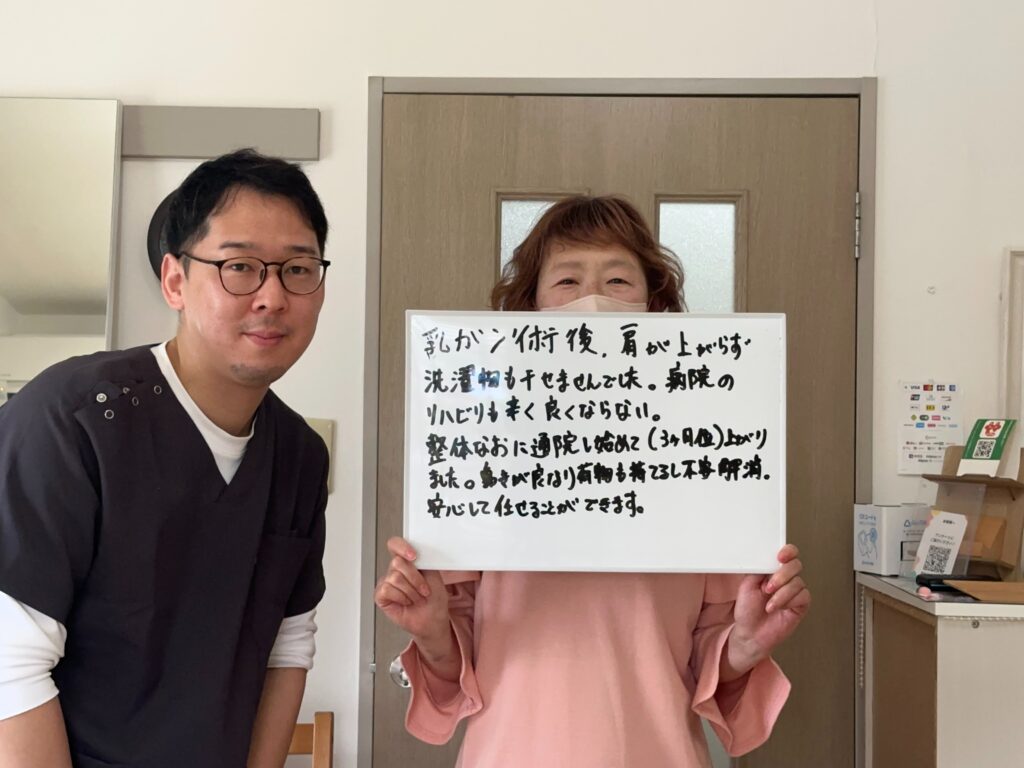 乳がン術後、肩が上がらず
洗濯物も干せませんでした。病院の
リハビリも辛く良くならない。
整体なおに通院し始めて(3ヶ月位)上がり
ました。動きが良なり荷物も持てるし不安解消。
安心して任せることができます。
VISA